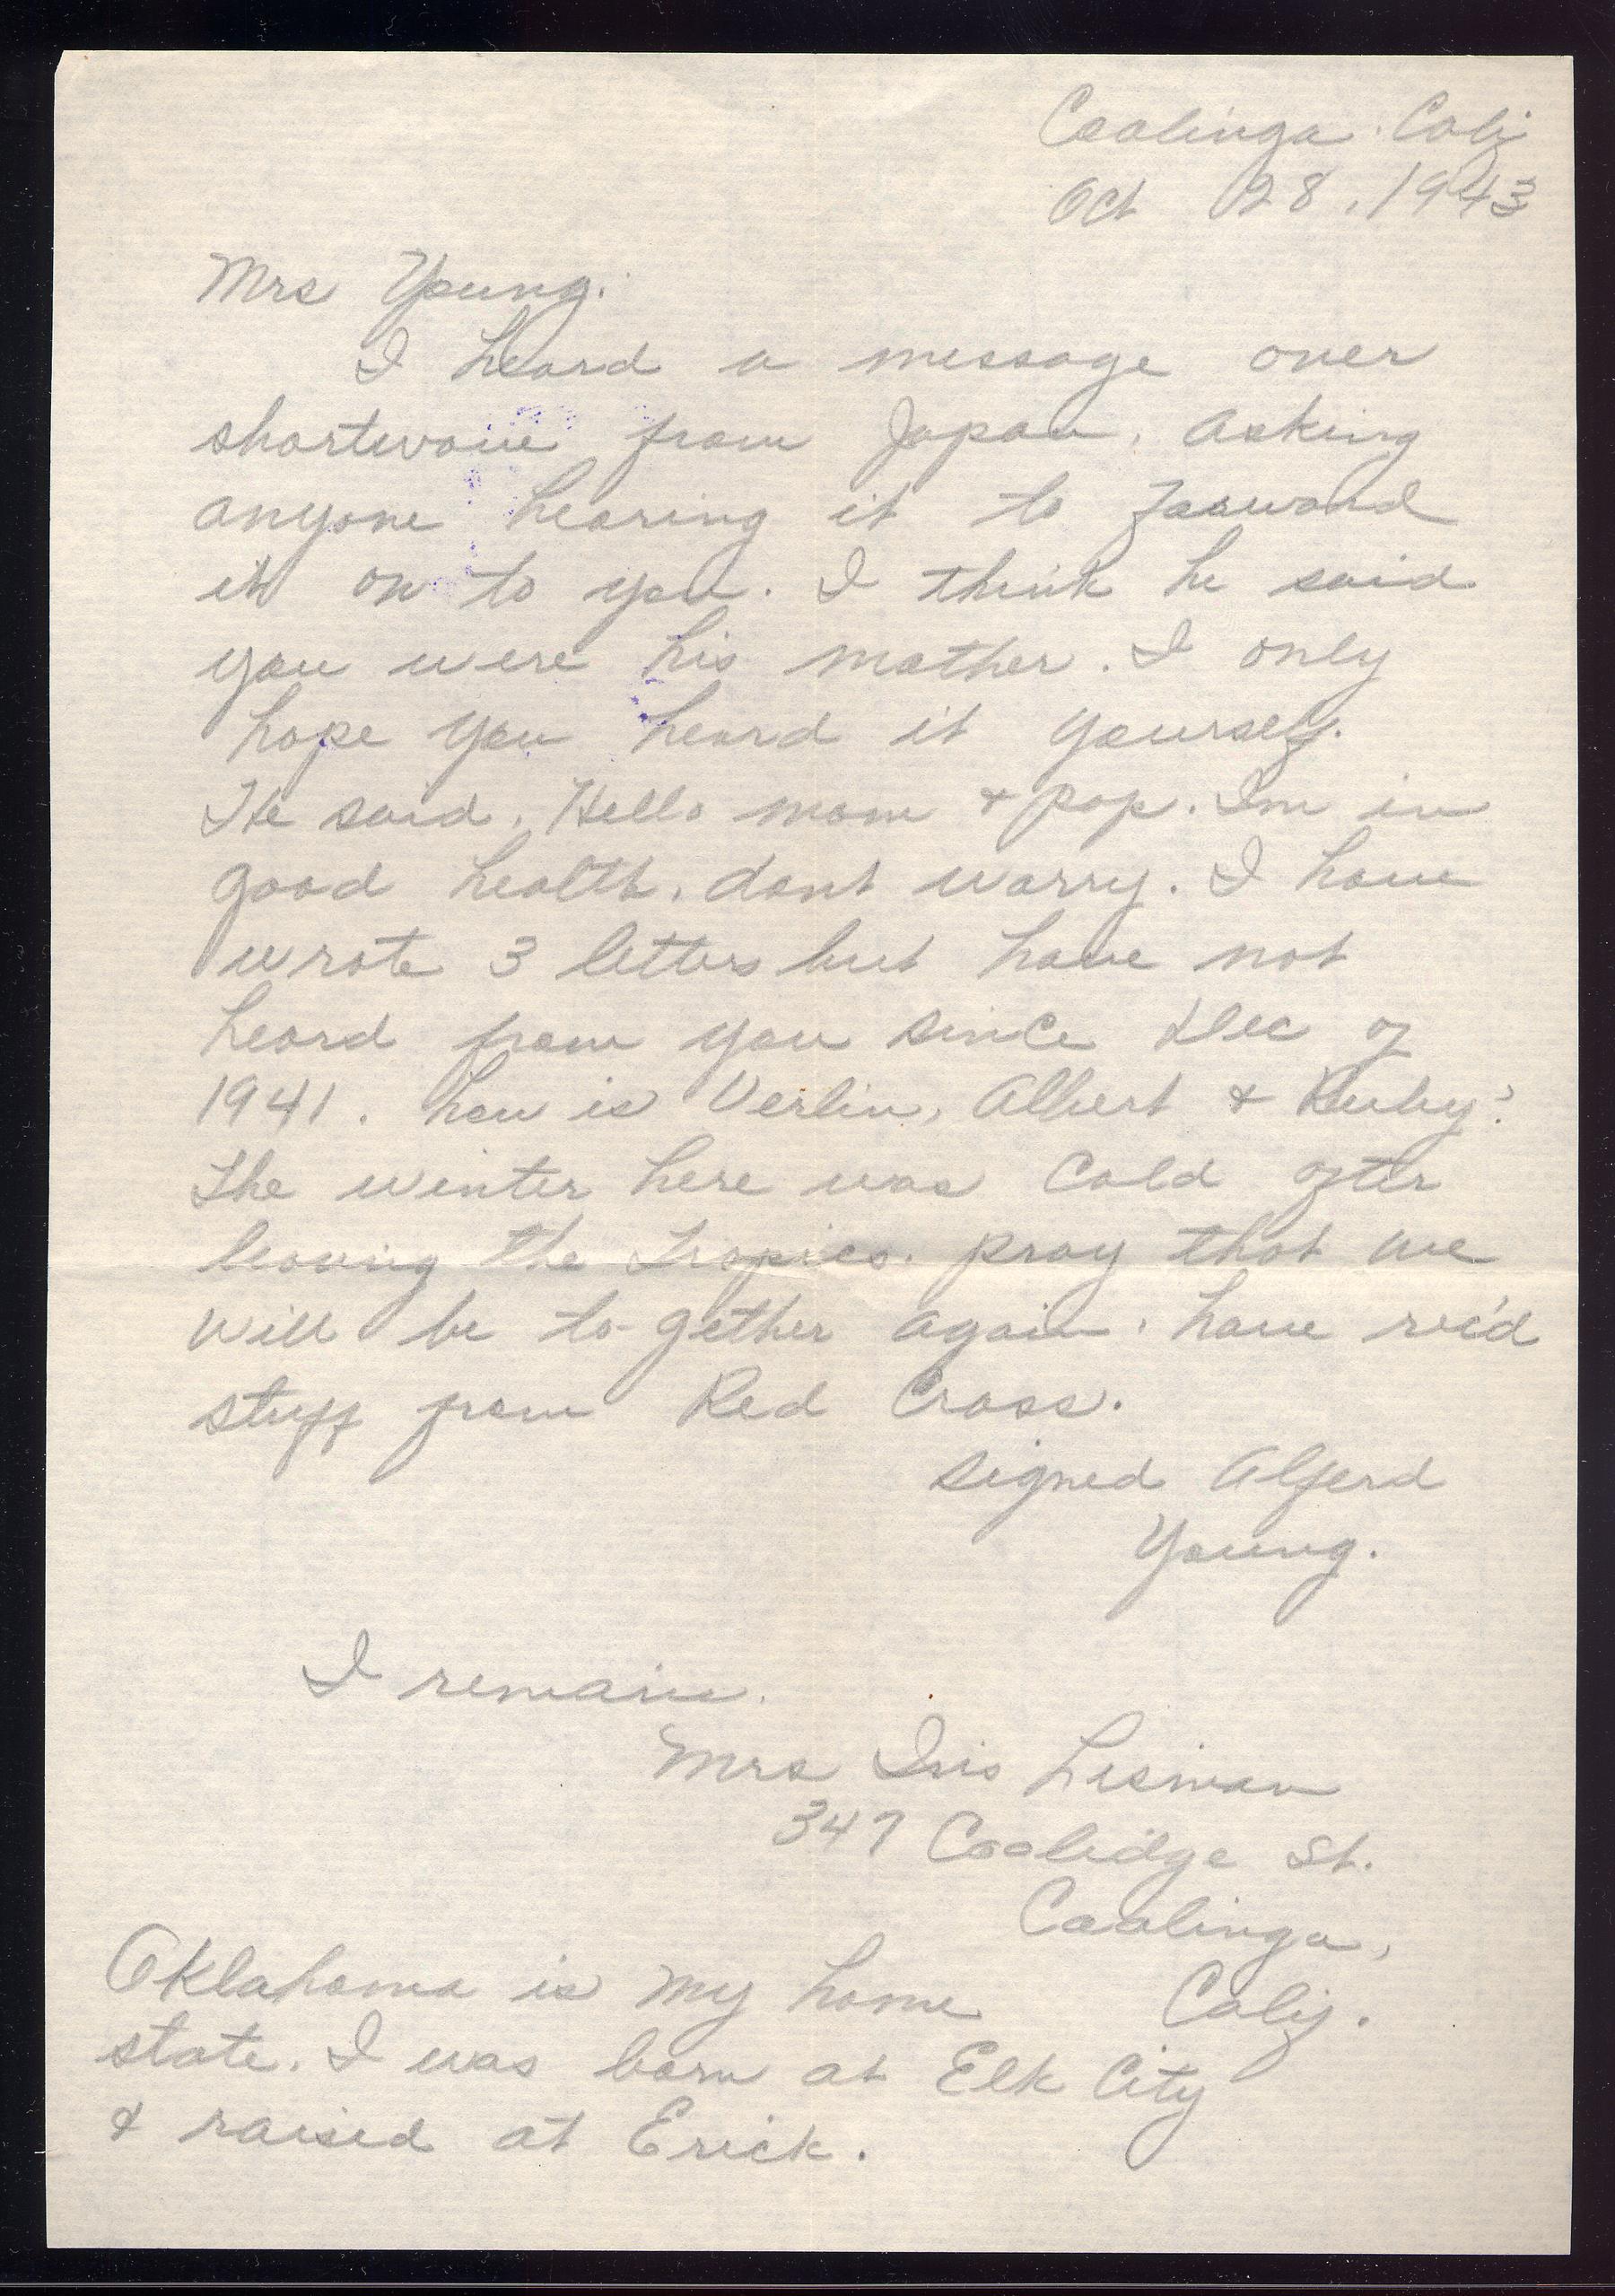 Coalinga. Calif
Oct 28, 1943
Mrs Young.
I heard a message over
shortwave from Japan, asking
anyone hearing it to forward
it on to you. I think he said
you were his mother. I only
hope you heard it yourself.
He said, Hello mom & pop. Im in
good health, dont worry. I have
wrote 3 letters but have not
heard from you since Dec of
1941. how is Verlin, Albert & Ruby?
The winter here was Cold after
leaving the tropics. pray that we
will be to-gether again. have rec'd
stuff from Red Cross.
signed Alferd
Young.
I remain.
Mrs Iris Lesman
347 Coolidge St.
Coalinga,
Calif.
Oklahoma is my home
state. I was born at Elk City
& raised at Erick.